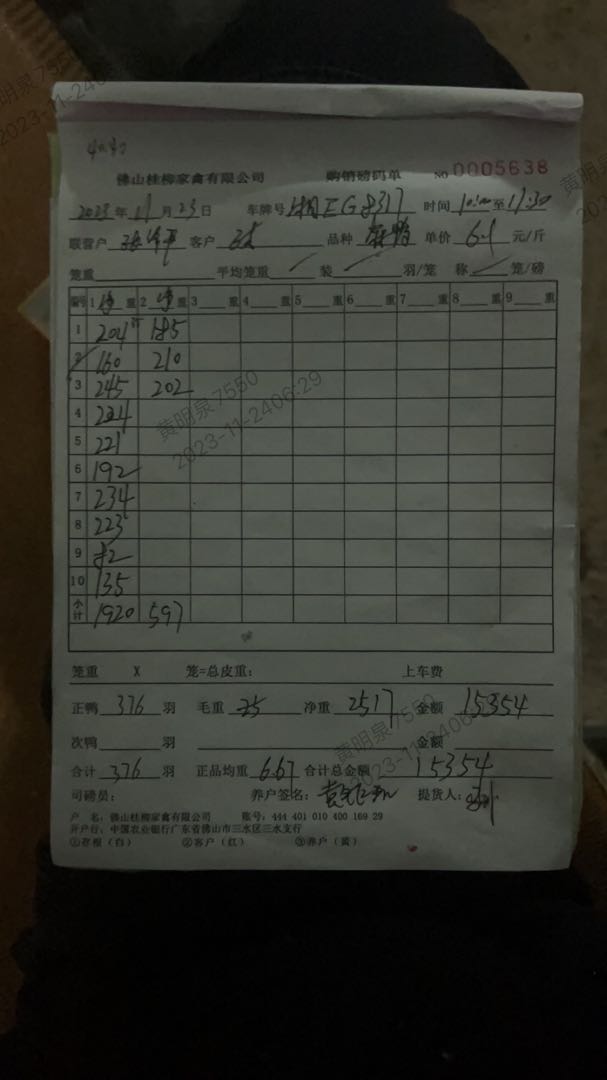 佛山桂柳家禽有限公司 购销磅码单 NO 0005638
2023年11月23日 车牌号 湘EG8317 时间 10:00至11:30
联营户 客户 品种 麻鸭 单价 6.1 元/斤
笼重 平均笼重 装 羽/笼 称 笼/磅
编号 1 净 重 2 净 重 3 重 4 重 5 重 6 重 7 重 8 重 9 重
1 204 185
2 160 210
3 245 202
4 224
5 221
6 192
7 234
8 223
9 82
10 135
小计 1920 597
笼重 X 笼=总皮重: 上车费
正鸭 376 羽 毛重 净重 2517 金额 15354
次鸭 羽 金额
合计 376 羽 正品均重 6.67 合计总金额 15354
司磅员: 养户签名: 提货人:
户 名: 佛山桂柳家禽有限公司 账号: 444 401 010 400 169 29
开户行: 中国农业银行广东省佛山市三水区三水支行
①存根(白) ②客户(红) ③养户(黄)
黄明泉 7550
2023-11-24 06:29